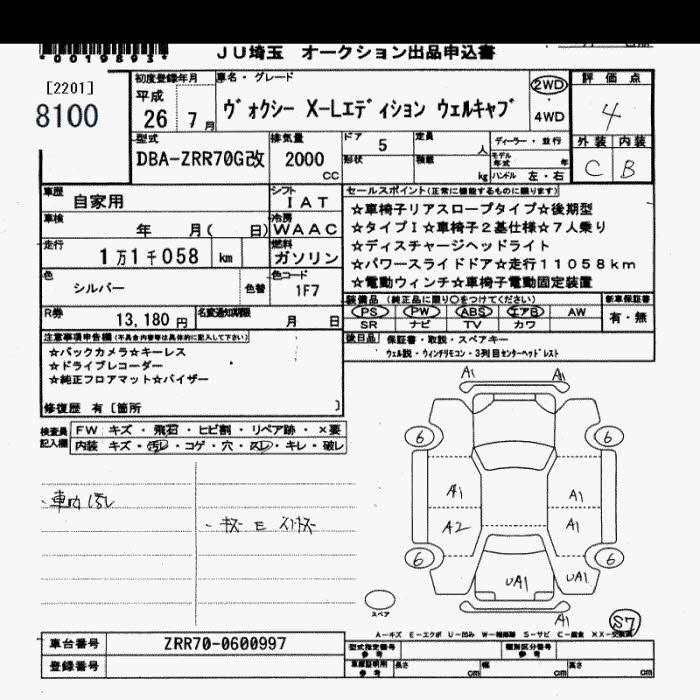 *0019893*
JU埼玉 オークション出品申込書
[2201]
8100
初度登録年月
平成
26 7月
車名・グレード
ヴォクシー X-Lエディション ウェルキャブ
2WD
・
4WD
評価点
4
外装 内装
C B
型式
DBA-ZRR70G改
排気量
2000
CC
ドア 5
定員
人
形状
積載
kg
ディーラー・並行
モデル年式 年
ハンドル 左・右
車歴
自家用
シフト
IAT
車検
年 月( 日)
冷房
WAAC
走行
1万1千058 km
燃料
ガソリン
色
シルバー
色替
色コード
1F7
R券
13,180円
名変通知期限
月 日
セールスポイント(正常に機能するものに限ります)
☆車椅子リアスロープタイプ☆後期型
☆タイプI☆車椅子2基仕様☆7人乗り
☆ディスチャージヘッドライト
☆パワースライドドア☆走行11058km
☆電動ウィンチ☆車椅子電動固定装置
装備品(純正品に限り○をつけてください)
PS PW ABS エアB AW
SR ナビ TV カワ
新車保証書
有・無
後日品 保証書・取説・スペアキー
ウェル説・ウィンチリモコン・3列目センターヘッドレスト
注意事項申告欄(不具合内容等は具体的に記入して下さい)
☆バックカメラ☆キーレス
☆ドライブレコーダー
☆純正フロアマット☆バイザー
修復歴 有[箇所 ]
検査員記入欄
FW キズ・飛石・ヒビ割・リペア跡・×要
内装 キズ・汚レ・コゲ・穴・スレ・キレ・破レ
・車内汚レ
・キズ E スリキズ
A1 A1
6 6
A1 A1
A2 A1
6 6
UA1 UA1
A1
スペア
S7
A-キズ E-エクボ U-凹み W-補修跡 S-サビ C-腐食 XX-交換済
車台番号 ZRR70-0600997
登録番号
型式指定番号
参考
類別区分番号
参考
車庫証明用
参考
長さ cm 幅 cm 高さ cm